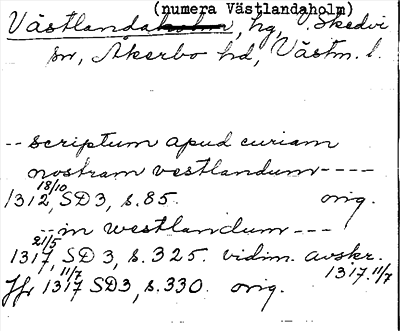 (numera Västlandaholm)
Västlandaholm, hg, V. Skedvi
sn, Åkerbo hd, Västm. l.
-- scriptum apud curiam
nostram vestlandum ----
1312 18/10, SD 3, s. 85. orig.
-- in westlandum ---
1317 21/5, SD 3, s. 325. vidim. avskr.
1317 11/7
Jfr 1317 11/7 SD3, s. 330. orig.